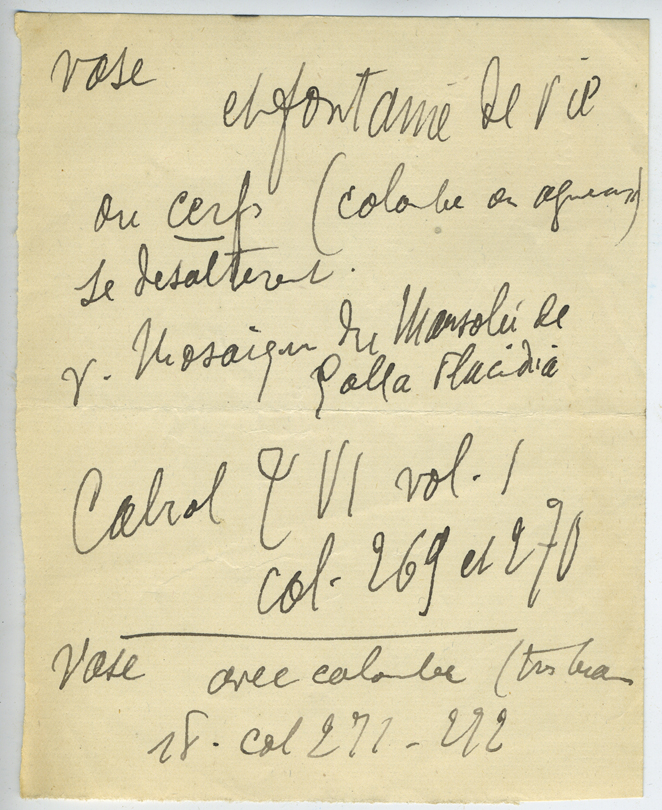 vase
et fontaine de vie
ou cerfs (colombe ou agneaux)
se desalterent.
v. Mosaïque du Mausolée de
Galla Placidia
Cabrol T VI vol. 1
col. 269 et 270
Vase avec colombe (très beau
id. col 271-272